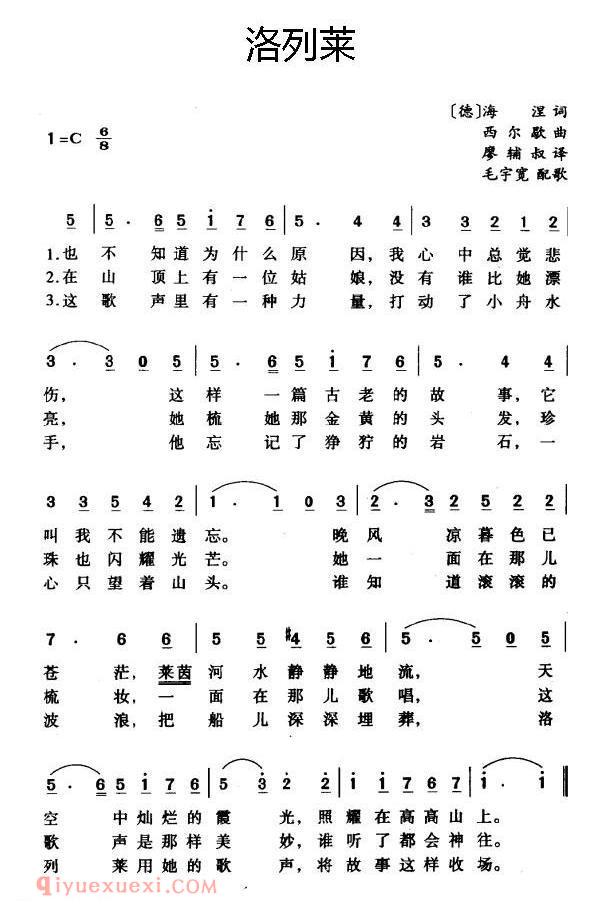 洛列莱
〔德〕海 涅 词
1=C 6/8
西 尔 歇 曲
廖 辅 叔 译
毛宇宽 配歌
5 | 5 · 6 5 i 7 6 | 5 · 4 4 | 3 3 2 1 2 |
1.也 不 知 道 为 什 么 原 因,我 心 中 总 觉 悲
2.在 山 顶 上 有 一 位 姑 娘,没 有 谁 比 她 漂
3.这 歌 声 里 有 一 种 力 量,打 动 了 小 舟 水
3 · 3 0 5 | 5 · 6 5 i 7 6 | 5 · 4 4 |
伤, 这 样 一 篇 古 老 的 故 事,它
亮, 她 梳 她 那 金 黄 的 头 发,珍
手, 他 忘 记 了 狰 狞 的 岩 石,一
3 3 5 4 2 | 1 · 1 0 3 | 2 · 3 2 5 2 2 |
叫 我 不 能 遗 忘。 晚 风 凉 暮 色 已
珠 也 闪 耀 光 芒。 她 一 面 在 那 儿
心 只 望 着 山 头。 谁 知 道 滚 滚 的
7 · 6 6 | 5 5 #4 5 6 | 5 · 5 0 5 |
苍 茫,莱茵 河 水 静 静 地 流, 天
梳 妆,一 面 在 那 儿 歌 唱, 这
波 浪,把 船 儿 深 深 埋 葬, 洛
5 · 6 5 i 7 6 | 5 3 2 | i i 7 6 7 | i · i ‖
空 中 灿 烂 的 霞 光,照 耀 在 高 高 山 上。
歌 声 是 那 样 美 妙,谁 听 了 都 会 神 往。
列 莱 用 她 的 歌 声,将 故 事 这 样 收 场。
qiyuexuexi.com